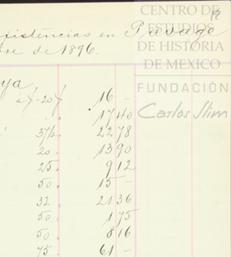 CENTRO DE
ESTUDIOS
DE HISTORIA
DE MÉXICO
FUNDACIÓN
Carlos Slim
existencias en Pasage
de 1896.
ya
20% 16 –
17 40
37½ 22 78
20. 13 90
25. 9 12
50. 15 –
32 21 36
50. 1 75
50 8 16
75 61 –